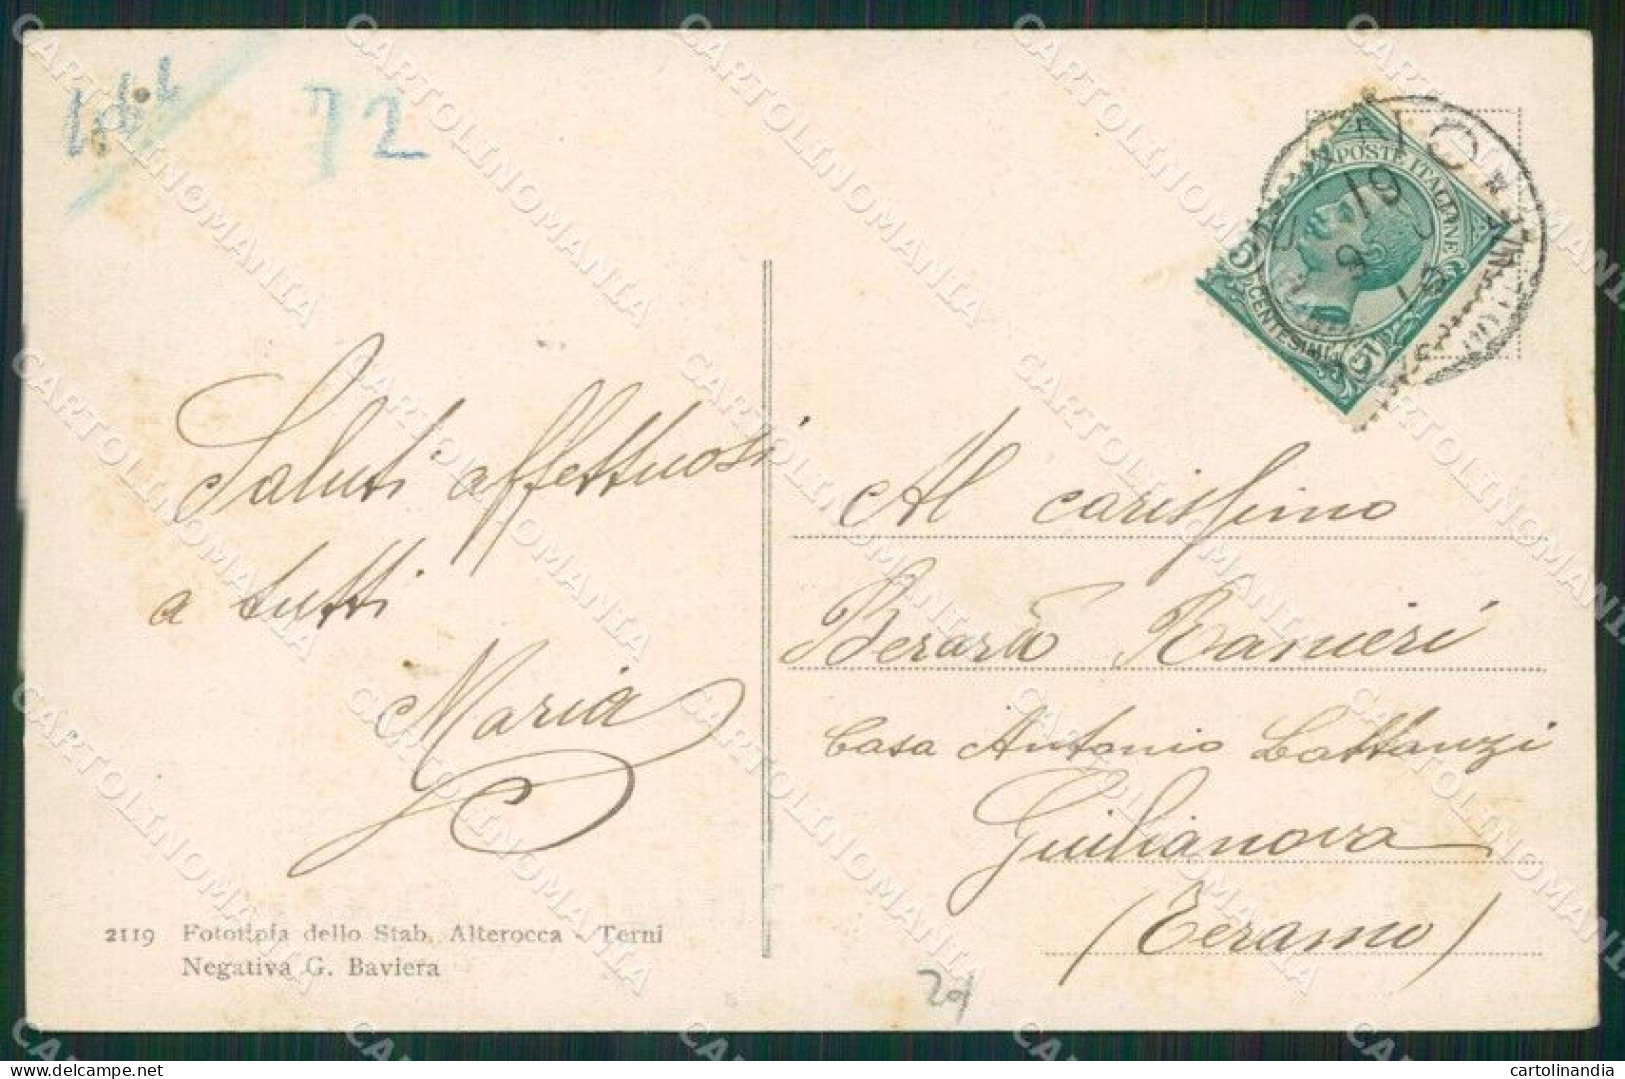 72
POSTE ITALIANE
CENTESIMI 5
Saluti affettuosi
a tutti
Maria
Al carissimo
Berardo Ranieri
Casa Antonio Lattanzi
Giulianova
(Teramo)
2119 Fototipia dello Stab. Alterocca - Terni
Negativa G. Baviera
CARTOLINOMANIA
cartolinandia